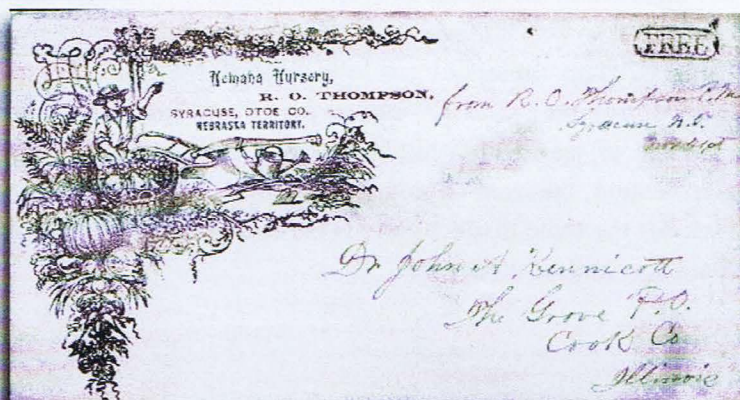 Nemaha Nursery,
R. O. THOMPSON,
SYRACUSE, OTOE CO.
NEBRASKA TERRITORY.
FREE
from R. O. Thompson P.M.
Syracuse N.T.
Dr John A Kennicott
The Grove P.O.
Cook Co
Illinois